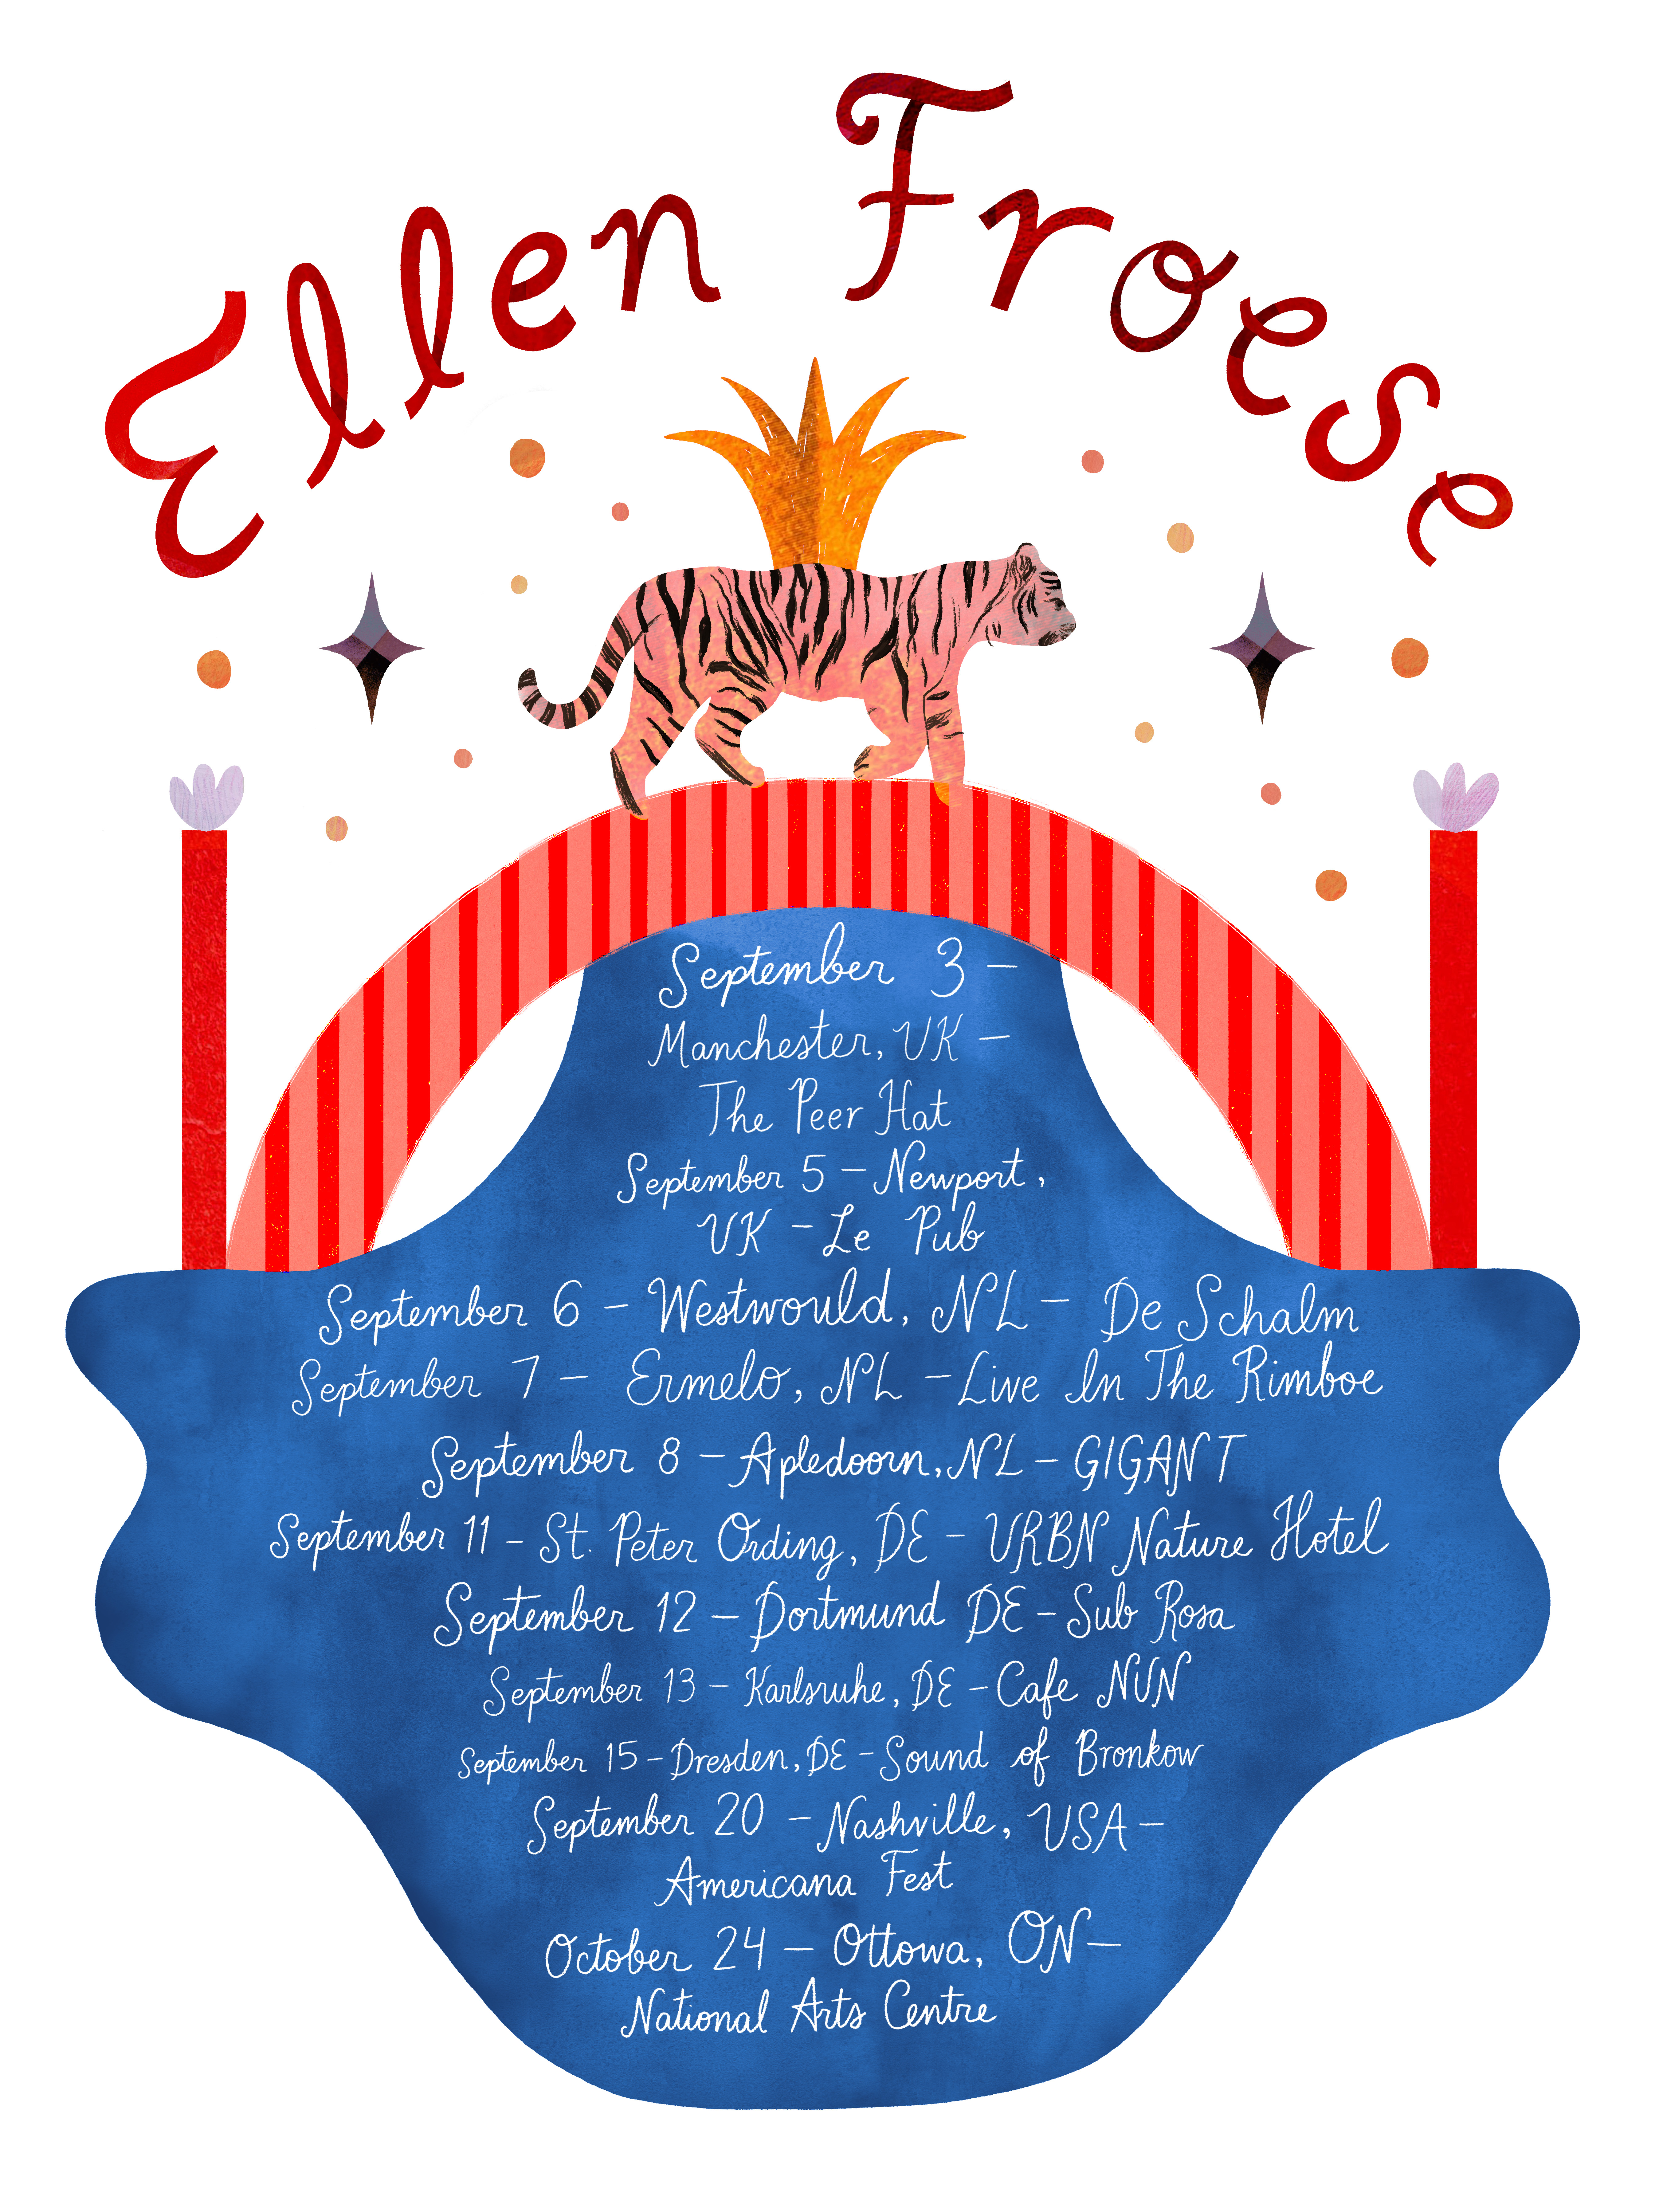 Ellen Froese
September 3 –
Manchester, UK –
The Peer Hat
September 5 – Newport,
UK – Le Pub
September 6 – Westwould, NL – De Schalm
September 7 – Ermelo, NL – Live In The Rimboe
September 8 – Apledoorn, NL – GIGANT
September 11 – St. Peter Ording, DE – URBN Nature Hotel
September 12 – Dortmund DE – Sub Rosa
September 13 – Karlsruhe, DE – Cafe NUN
September 15 – Dresden, DE – Sound of Bronkow
September 20 – Nashville, USA –
Americana Fest
October 24 – Ottowa, ON –
National Arts Centre